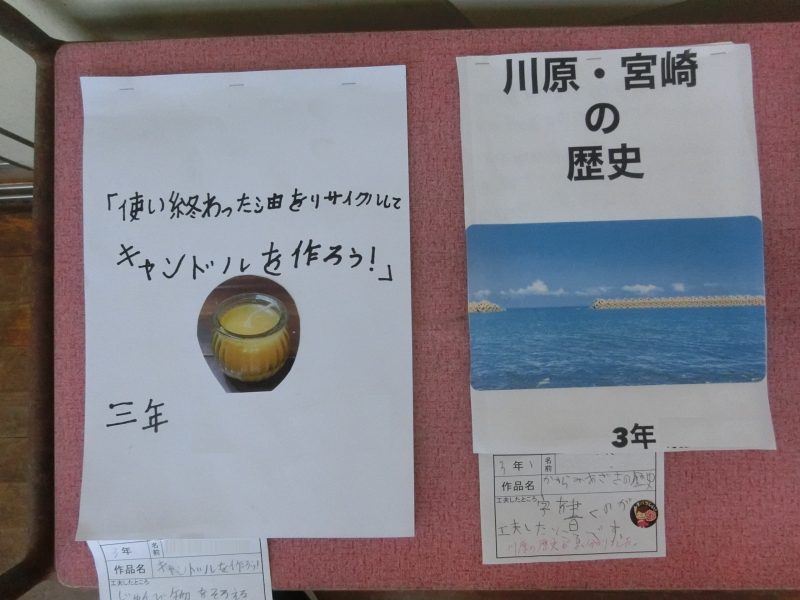 「使い終わった油をリサイクルして
キャンドルを作ろう!」
三年
3年
名前
作品名
キャンドルを作ろう!
工夫したところ
じゅんび物をそろえる
川原・宮崎
の
歴史
3年
3年
名前
作品名
工夫したところ
字を書くのが
工夫した